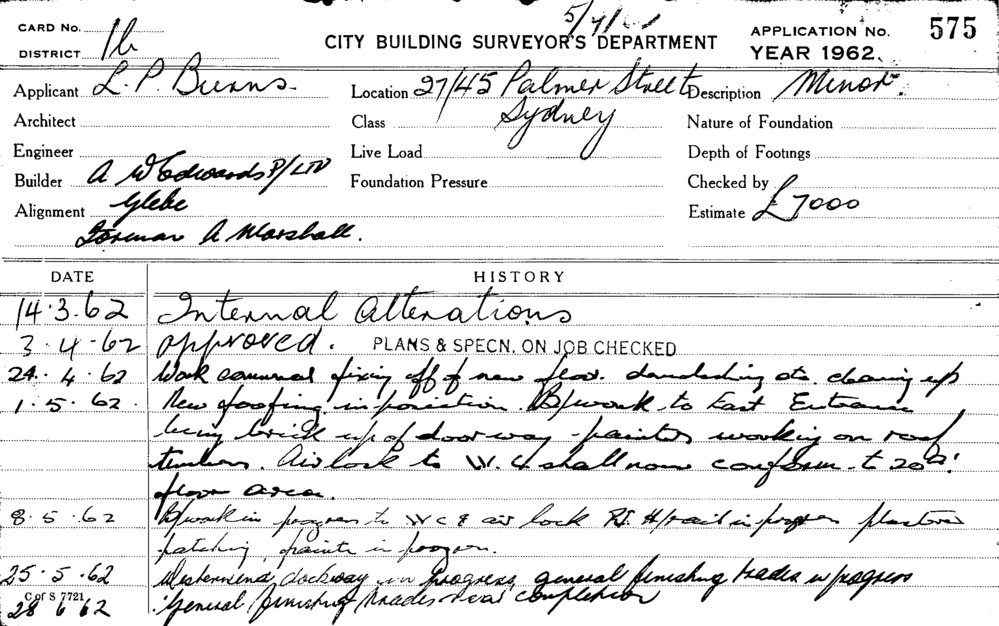 5/7/62
CARD No.
CITY BUILDING SURVEYOR'S DEPARTMENT
APPLICATION No. 575
DISTRICT 1b
YEAR 1962.
Applicant L. P. Burns. Location 27/45 Palmer Street Description Minor.
Architect Class Sydney Nature of Foundation
Engineer Live Load Depth of Footings
Builder A W Edwards P/LTD Foundation Pressure Checked by
Alignment Glebe Estimate £7000
Foreman A Marshall.
DATE HISTORY
14.3.62 Internal Alterations
3.4.62 Approved. PLANS & SPECN. ON JOB CHECKED
24.4.62 Work commenced fixing off of new floor. demolishing etc. cleaning up
1.5.62. New roofing in position. B/work to East Entrance
being brick up of doorway painters working on roof
timbers. Air lock to W.C. shall now conform to 20
floor area.
8.5.62 B/work in progress to WC & air lock H/rail in progress plasterer
patching, painter in progress.
25.5.62 dockway in progress, general finishing trades in progress
C of S 7721
28 6 62 General finishing trades near completion